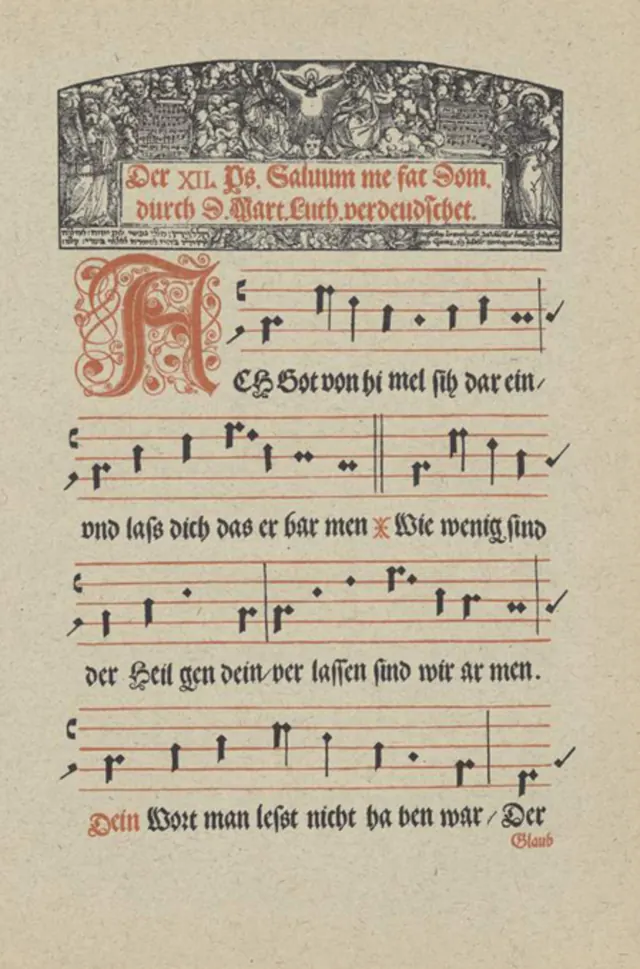 Der XII. Ps. Saluum me fac Dom.
durch D. Mart. Luth. verdeudſchet.
ACH Got von hi mel ſih dar ein/
vnd laſs dich das er bar men Wie wenig ſind
der Heil gen dein/ ver laſſen ſind wir ar men.
Dein Wort man leſst nicht ha ben war/ Der
Glaub